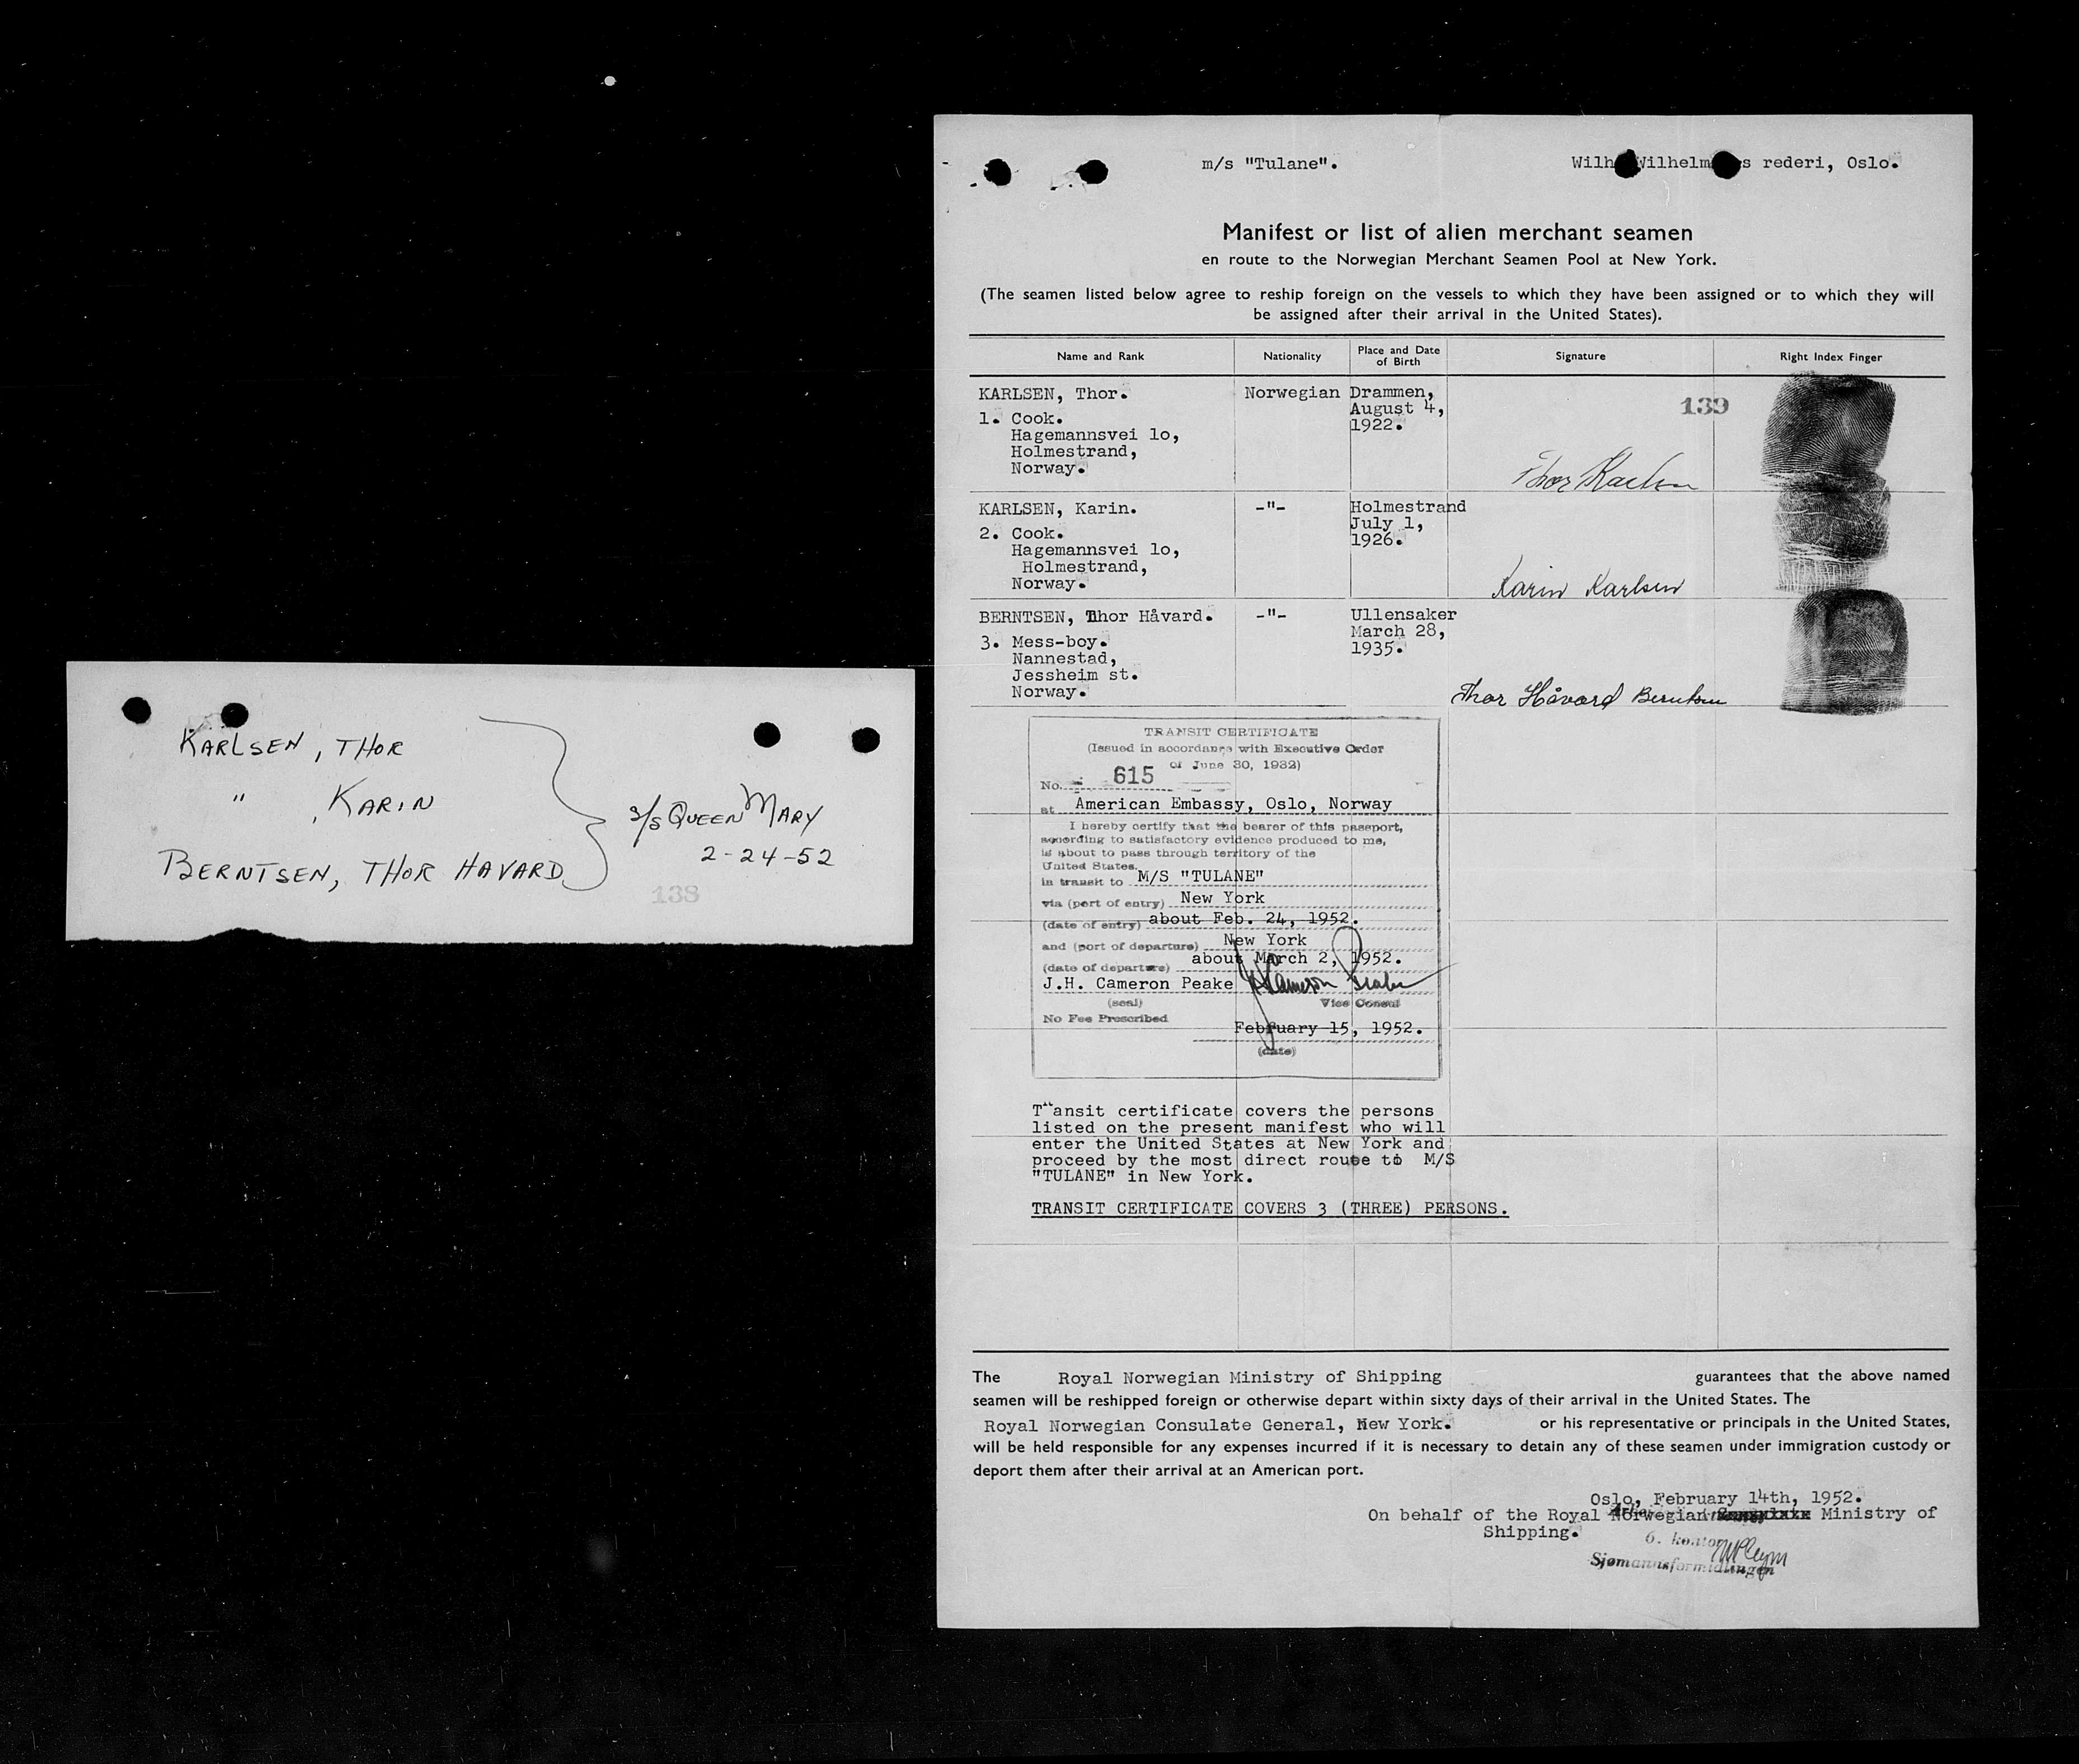 KARLSEN, THOR
" , KARIN
BERNTSEN, THOR HAVARD
S/S QUEEN MARY
2-24-52
138
m/s "Tulane".
Wilh Wilhelm s rederi, Oslo.
Manifest or list of alien merchant seamen
en route to the Norwegian Merchant Seamen Pool at New York.
(The seamen listed below agree to reship foreign on the vessels to which they have been assigned or to which they will
be assigned after their arrival in the United States).
Name and Rank
Nationality
Place and Date
of Birth
Signature
Right Index Finger
KARLSEN, Thor.
1. Cook.
Hagemannsvei 1o,
Holmestrand,
Norway.
Norwegian
Drammen,
August 4,
1922.
139
Thor Karlsen
KARLSEN, Karin.
2. Cook.
Hagemannsvei 1o,
Holmestrand,
Norway.
-"-
Holmestrand
July 1,
1926.
Karin Karlsen
BERNTSEN, Thor Håvard.
3. Mess-boy.
Nannestad,
Jessheim st.
Norway.
-"-
Ullensaker
March 28,
1935.
Thor Håvard Berntsen
TRANSIT CERTIFICATE
(Issued in accordance with Executive Order
of June 30, 1932)
No. 615
at American Embassy, Oslo, Norway
I hereby certify that the bearer of this passport,
according to satisfactory evidence produced to me,
is about to pass through territory of the
United States.
in transit to M/S "TULANE"
via (port of entry) New York
(date of entry) about Feb. 24, 1952.
and (port of departure) New York
(date of departure) about March 2, 1952.
J.H. Cameron Peake JHCameron Peake
(seal) Vice Consul
No Fee Prescribed
February 15, 1952.
(date)
Transit certificate covers the persons
listed on the present manifest who will
enter the United States at New York and
proceed by the most direct route to M/S
"TULANE" in New York.
TRANSIT CERTIFICATE COVERS 3 (THREE) PERSONS.
The Royal Norwegian Ministry of Shipping guarantees that the above named
seamen will be reshipped foreign or otherwise depart within sixty days of their arrival in the United States. The
Royal Norwegian Consulate General, New York. or his representative or principals in the United States,
will be held responsible for any expenses incurred if it is necessary to detain any of these seamen under immigration custody or
deport them after their arrival at an American port.
Oslo, February 14th, 1952.
On behalf of the Royal Norwegian Ministry of
Shipping.
6. kontor
Sjømannsformidlingen